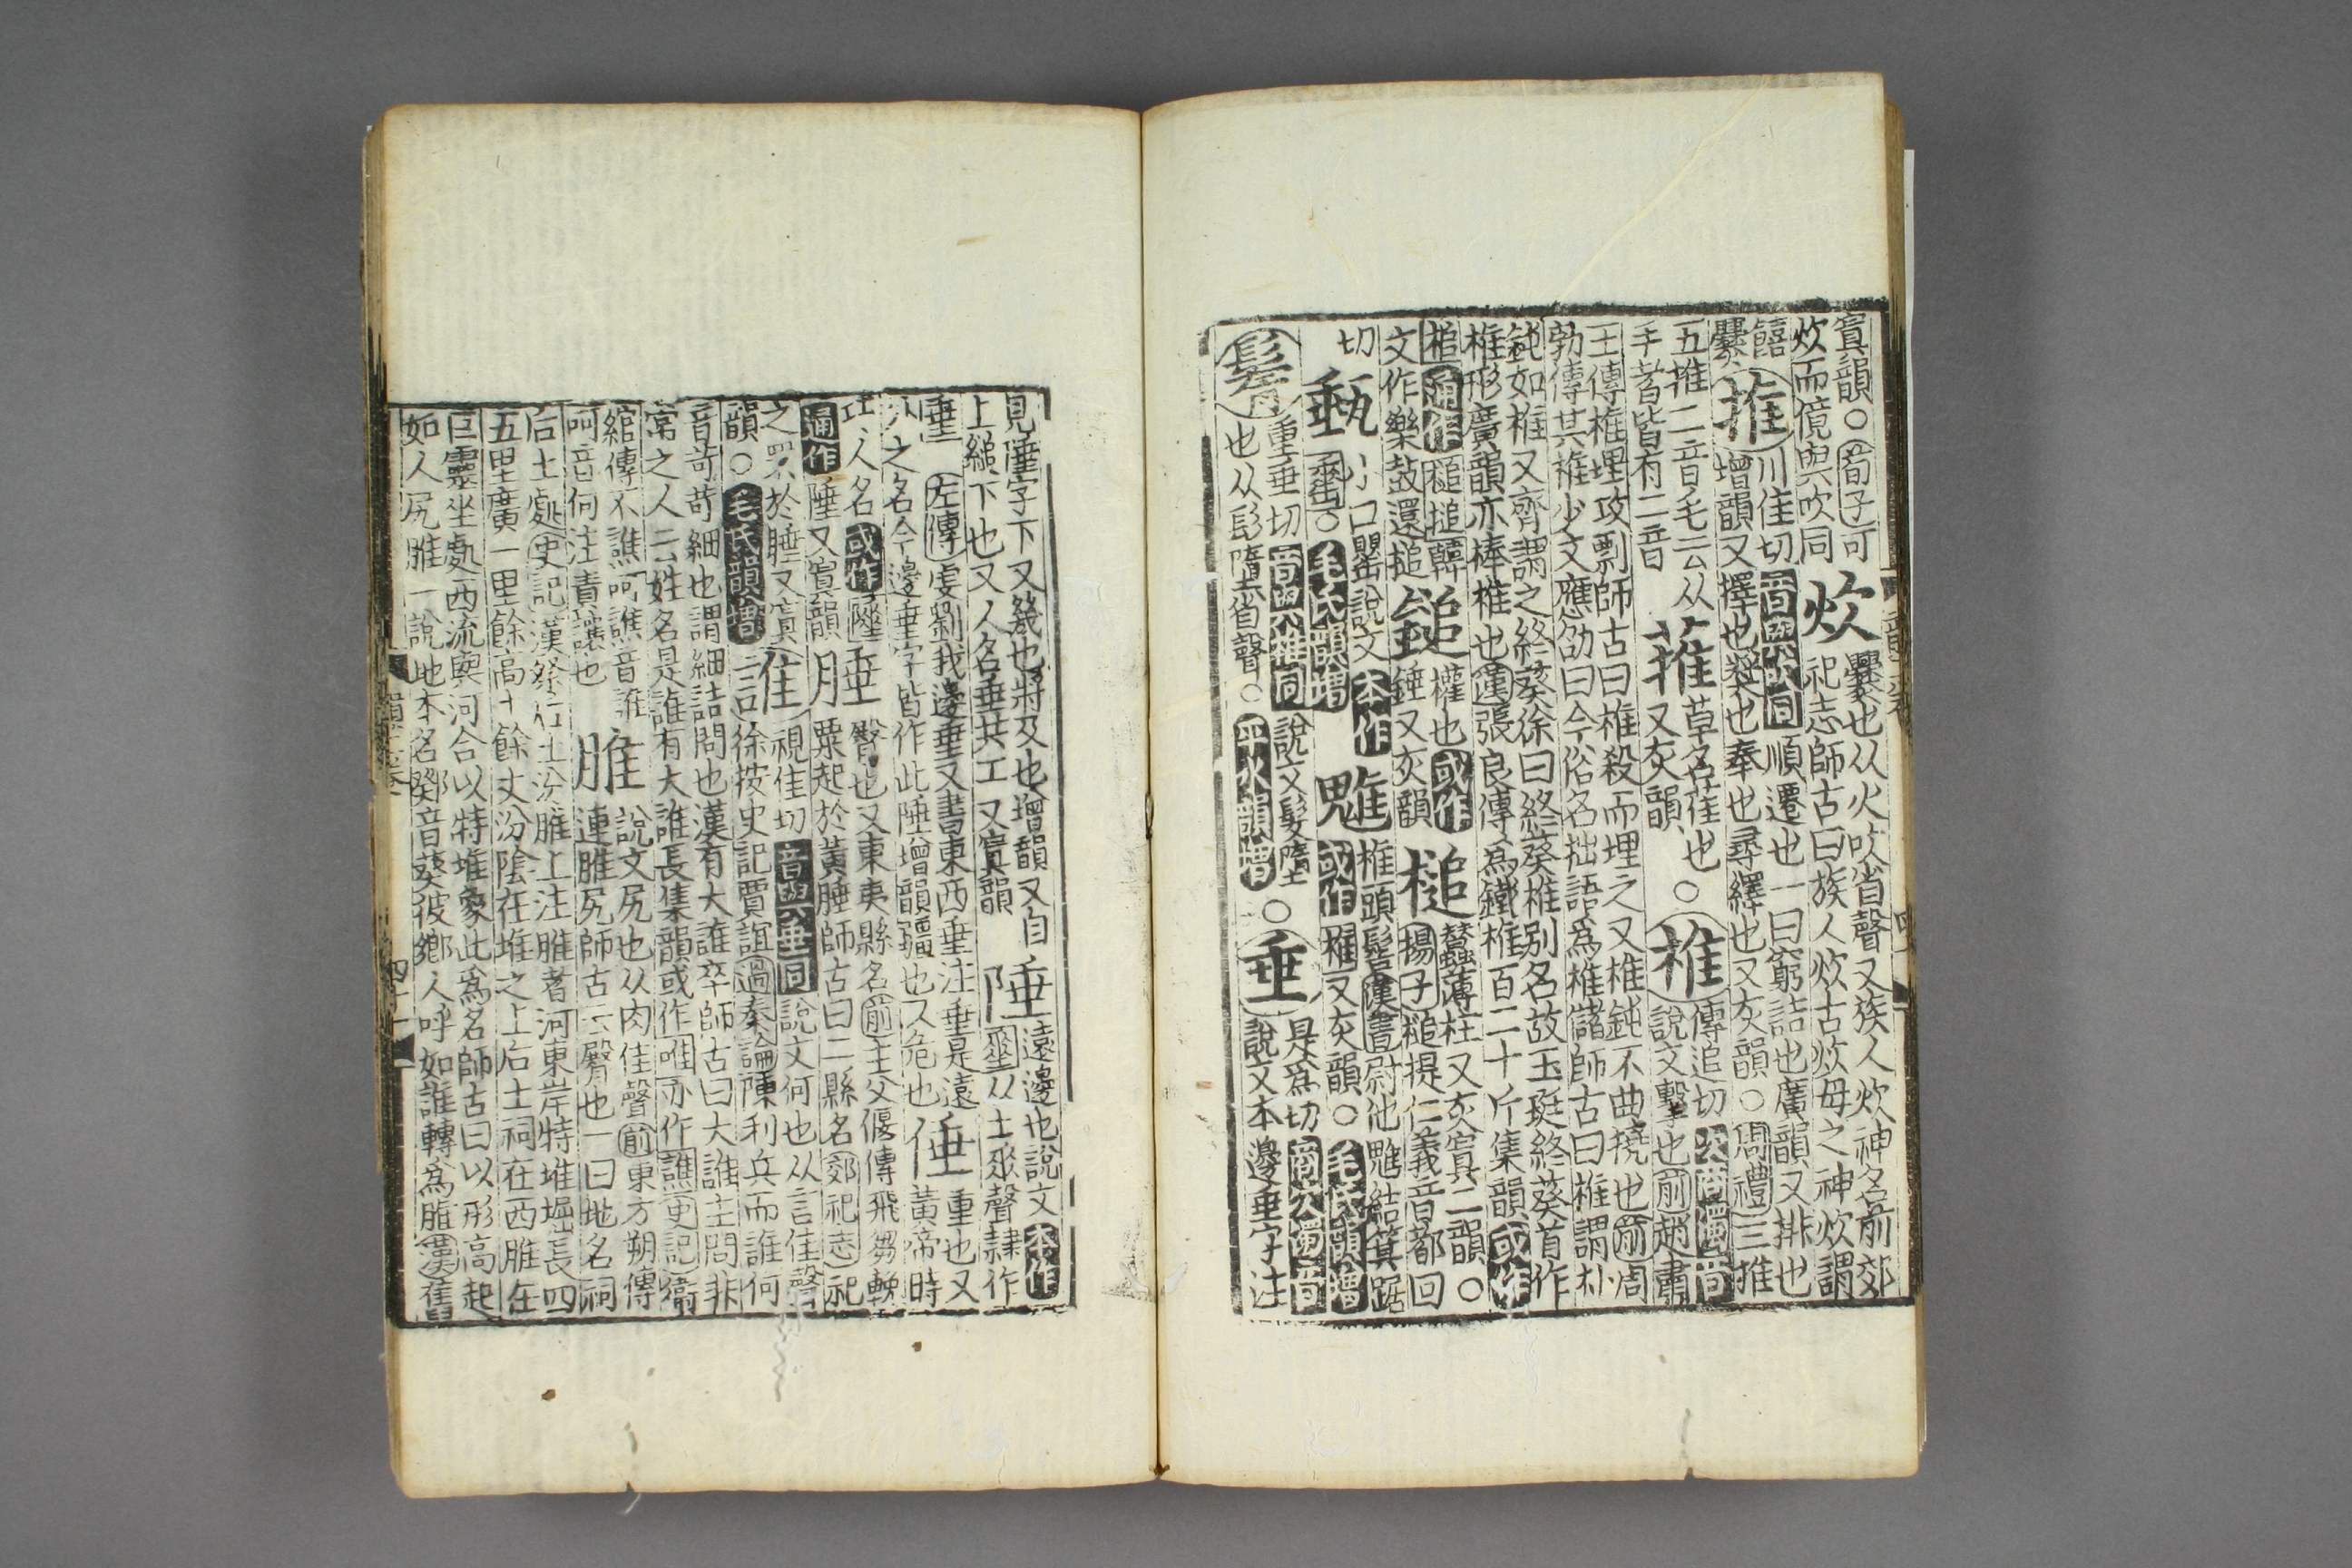 寘韻○荀子可
炊而傹與吹同
炊
爨也从火吹省聲又族人炊神名前郊
祀志師古曰族人炊古炊母之神炊謂
饎
爨
推
川隹切音與吹同順遷也一曰窮詰也廣韻又排也
增韻又擇也奬也奉也尋繹也又灰韻○周禮三推
五推二音毛云从
手者皆有二音
蓷
草名萑也
又灰韻
○椎
傳追切次商濁音
說文擊也前趙肅
王傳椎埋攻剽師古曰椎殺而埋之又椎鈍不曲撓也前周
勃傳其椎少文應劭曰今俗名拙語爲椎儲師古曰椎謂朴
鈍如椎又齊謂之終葵徐曰終葵椎別名故玉珽終葵首作
椎形廣韻亦棒椎也漢張良傳爲鐵椎百二十斤集韻或作
槌通作槌搥韓
文作樂鼓還搥
鎚
權也或作
錘又灰韻
槌
蠶薄柱又灰寘二韻○
揚子槌提仁義音都回
切
甀
小口罌說文本作
○毛氏韻增
魋
椎頭髻漢書尉佗魋結箕踞
或作椎又灰韻○毛氏韻增
鬌
重垂切音與椎同說文髮隋
也从髟隋省聲○平水韻增
○垂
是爲切商次濁音
說文本邊垂字注
見陲字下又幾也將及也增韻又自
上縋下也又人名垂共工又寘韻
陲
遠邊也說文本作
从土𠂹聲隷作
垂左傳虔劉我邊垂又書東西垂注垂是遠
外之名今邊垂字皆作此陲增韻疆也又危也
倕
重也又
黃帝時
巧人名或作
通作陲又寘韻
腄
也又東夷縣名前主父偃傳飛芻輓
粟起於黃腄師古曰二縣名郊祀志祀
之罘於腄又寘
韻○毛氏韻增
誰
視隹切音與垂同說文何也从言隹聲
徐按史記賈誼過秦論陳利兵而誰何
音苛苛細也謂細詰問也漢有大誰卒師古曰大誰主問非
常之人云姓名是誰有大誰長集韻或作唯亦作譙史記衛
綰傳不譙呵譙音誰
呵音何注責讓也
脽
說文尻也从肉隹聲前東方朔傳
連脽尻師古云臀也一曰地名祠
后土處史記漢祭后土汾脽上注脽者河東岸特堆堀長四
五里廣一里餘高十餘丈汾陰在堆之上后土祠在西脽在
巨靈坐處西流與河合以特堆象此爲名師古曰以形高起
如人尻脽一說地本名鄈音葵彼鄉人呼如誰轉爲脽漢舊